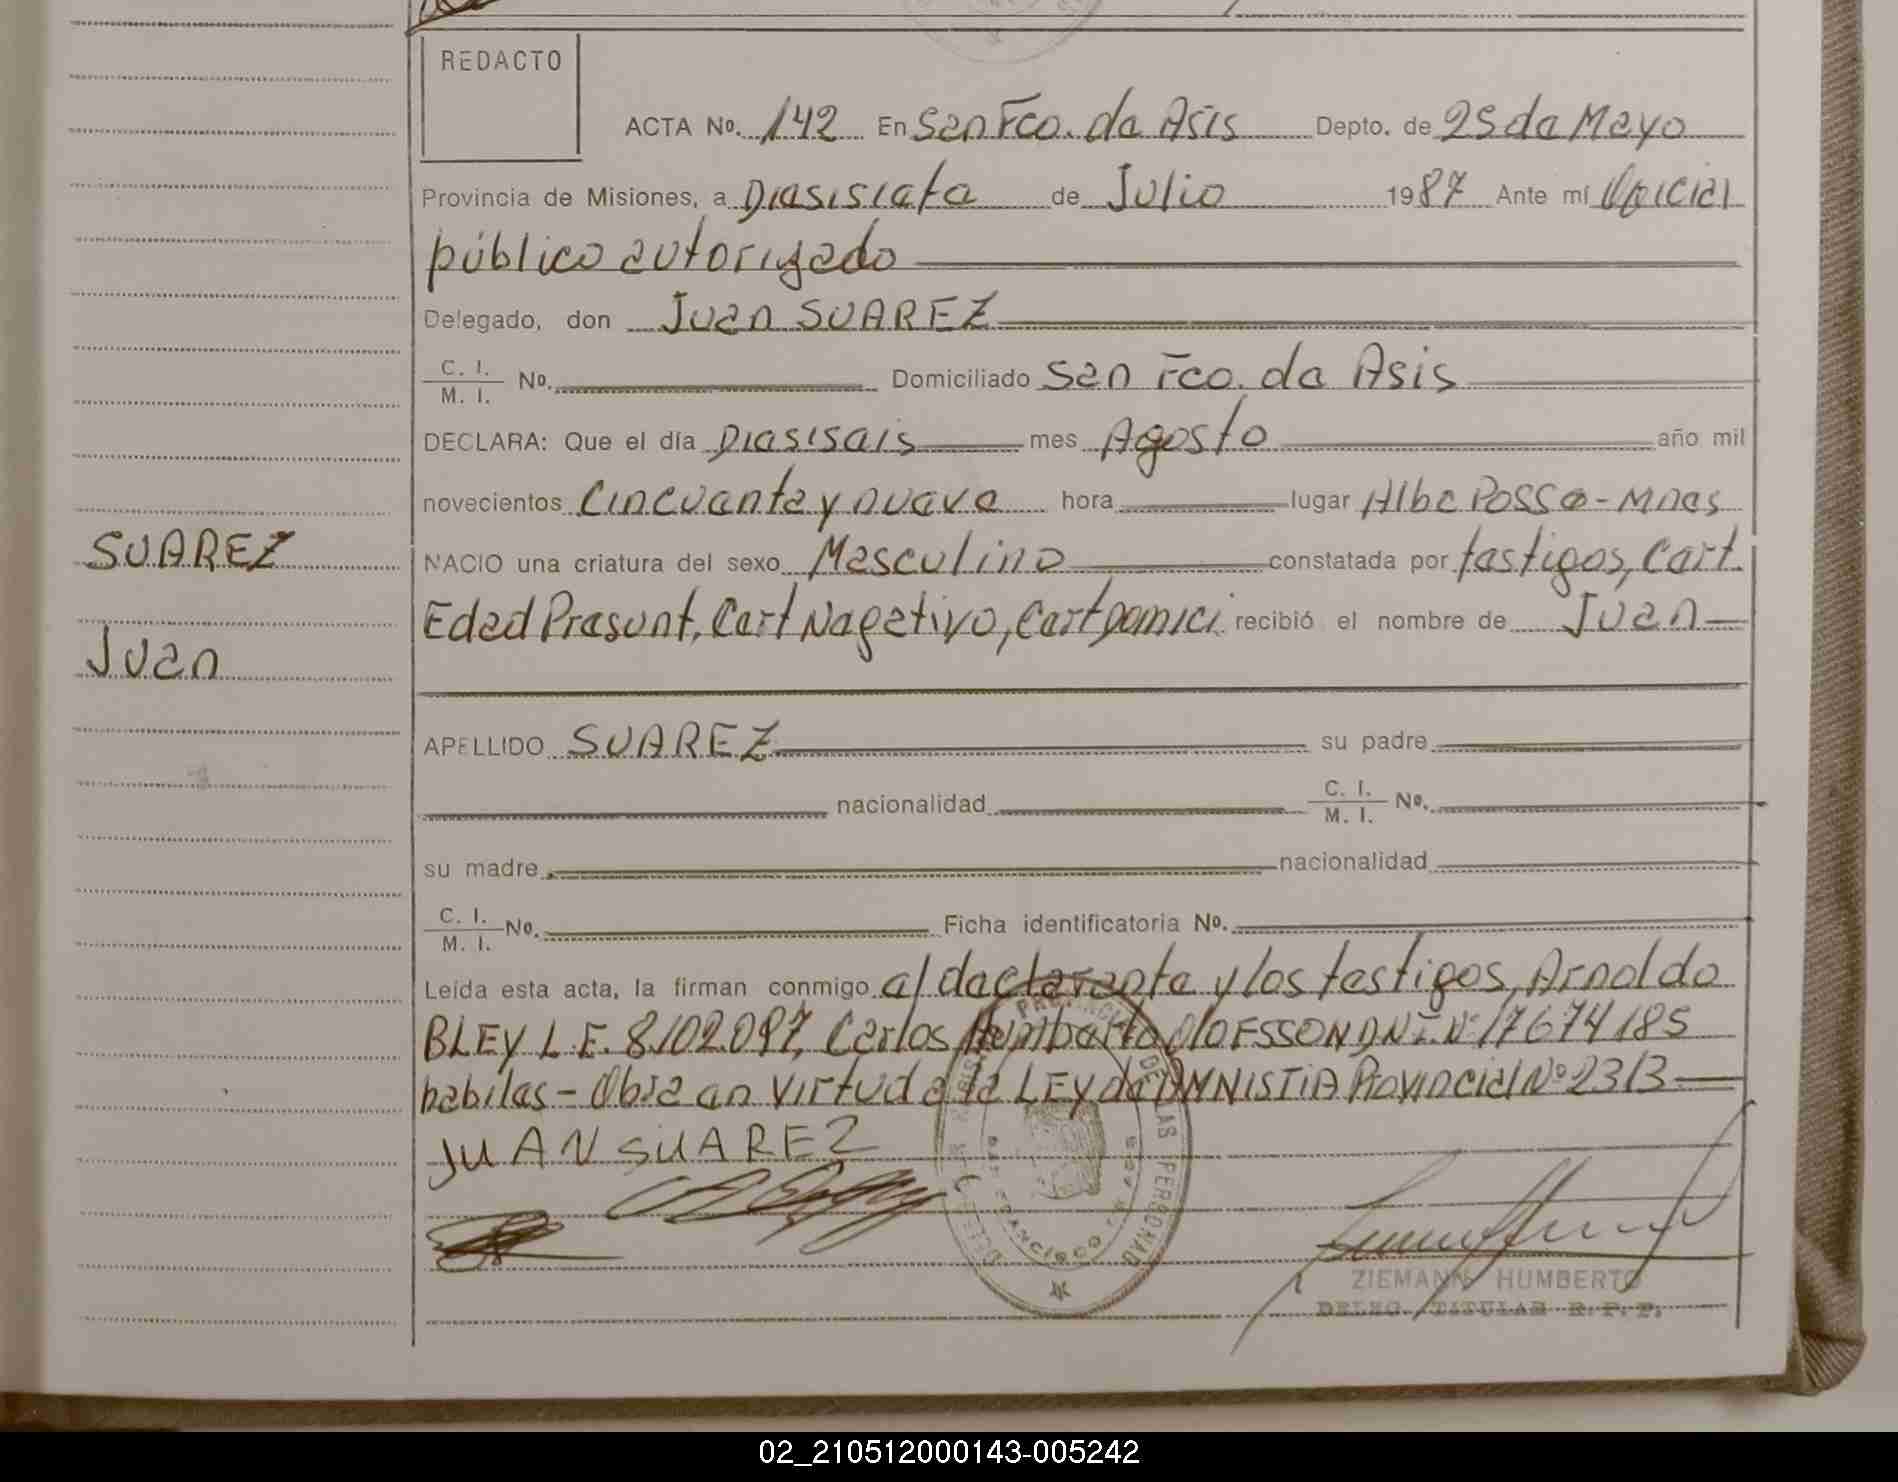 REDACTO
ACTA Nº. 142 En San Fco. de Asis Depto. de 25 de Mayo
Provincia de Misiones, a Diesisiete de Julio 1987 Ante mí Oficial
público autorizado
Delegado, don Juan SUAREZ
C. I.
M. I. Nº. Domiciliado San Fco. de Asis
DECLARA: Que el día Diesiseis mes Agosto año mil
novecientos Cincuenta y nueve hora lugar Alba Posse - Mnes
SUAREZ
NACIO una criatura del sexo Masculino constatada por testigos, Cert.
Edad Presunt, Cert Negativo, Cert Domici. recibió el nombre de Juan
Juan
APELLIDO SUAREZ su padre
nacionalidad C. I.
M. I. Nº.
su madre nacionalidad
C. I.
M. I. Nº. Ficha identificatoria Nº.
Leída esta acta, la firman conmigo el declarante y los testigos, Arnoldo
BLEY L.E. 8.102.097, Carlos Humberto D.N.I. Nº 17674185
habiles - Obra en virtud a la LEY de AMNISTIA Provincial Nº 2313
JUAN SUAREZ
DE LAS PERSONAS
FRANCISCO
ZIEMANN HUMBERTO
DELEG. TITULAR R. P. P.
02_210512000143-005242